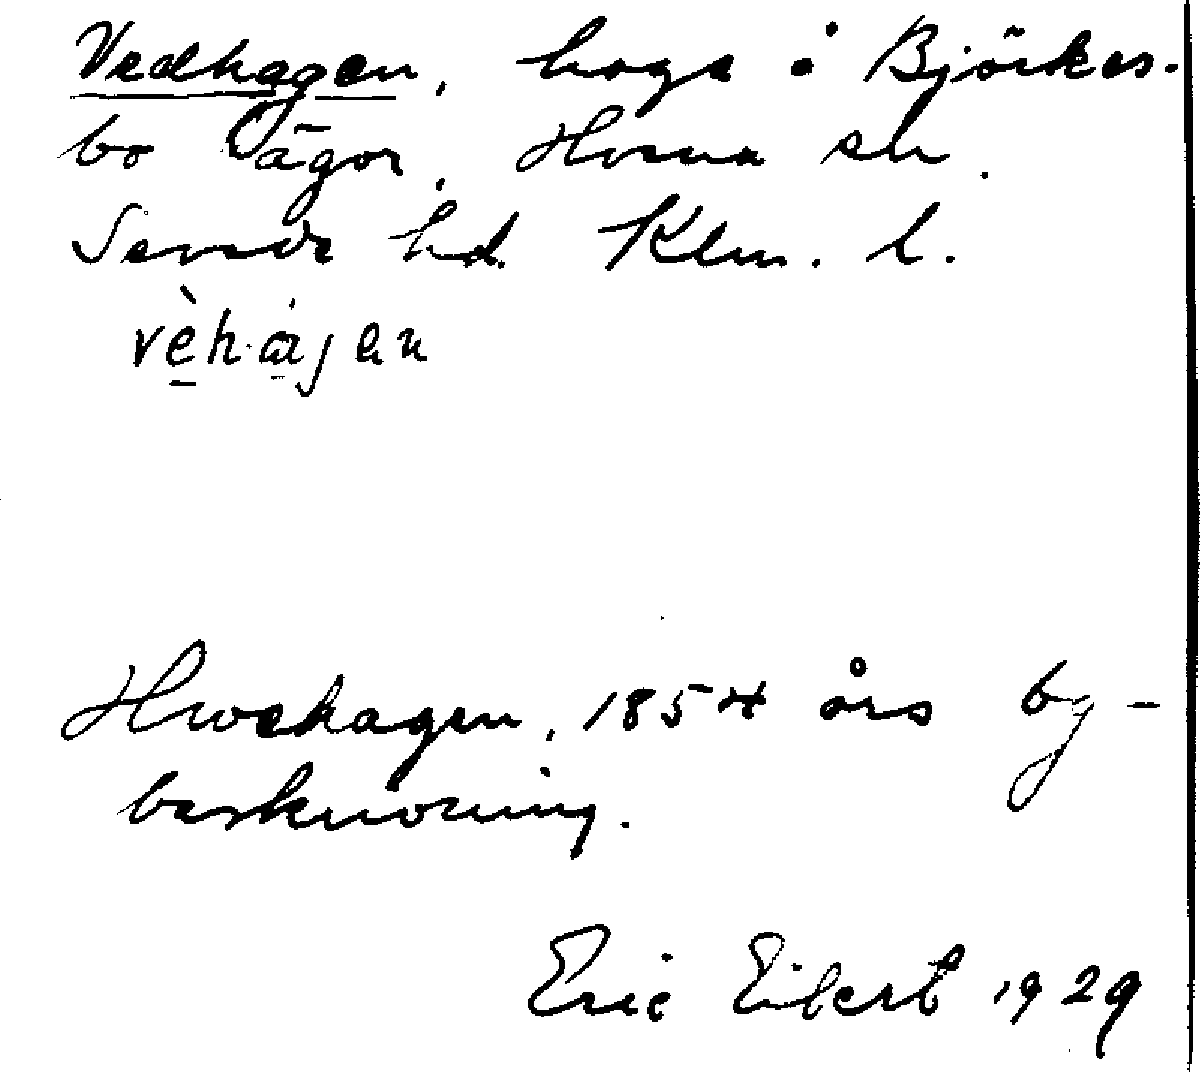 Vedhagen, hage i Björkes-
bo ägor, Horna sn.
Sevede hd. Klm. l.
vèhàgen
1854 års by-
beskrivning.
Eric Eibert 1929